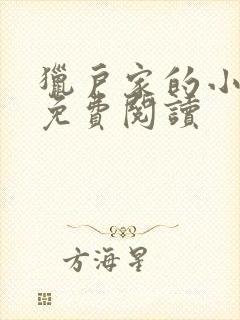 獵戶家的小
免費閱讀
方海星